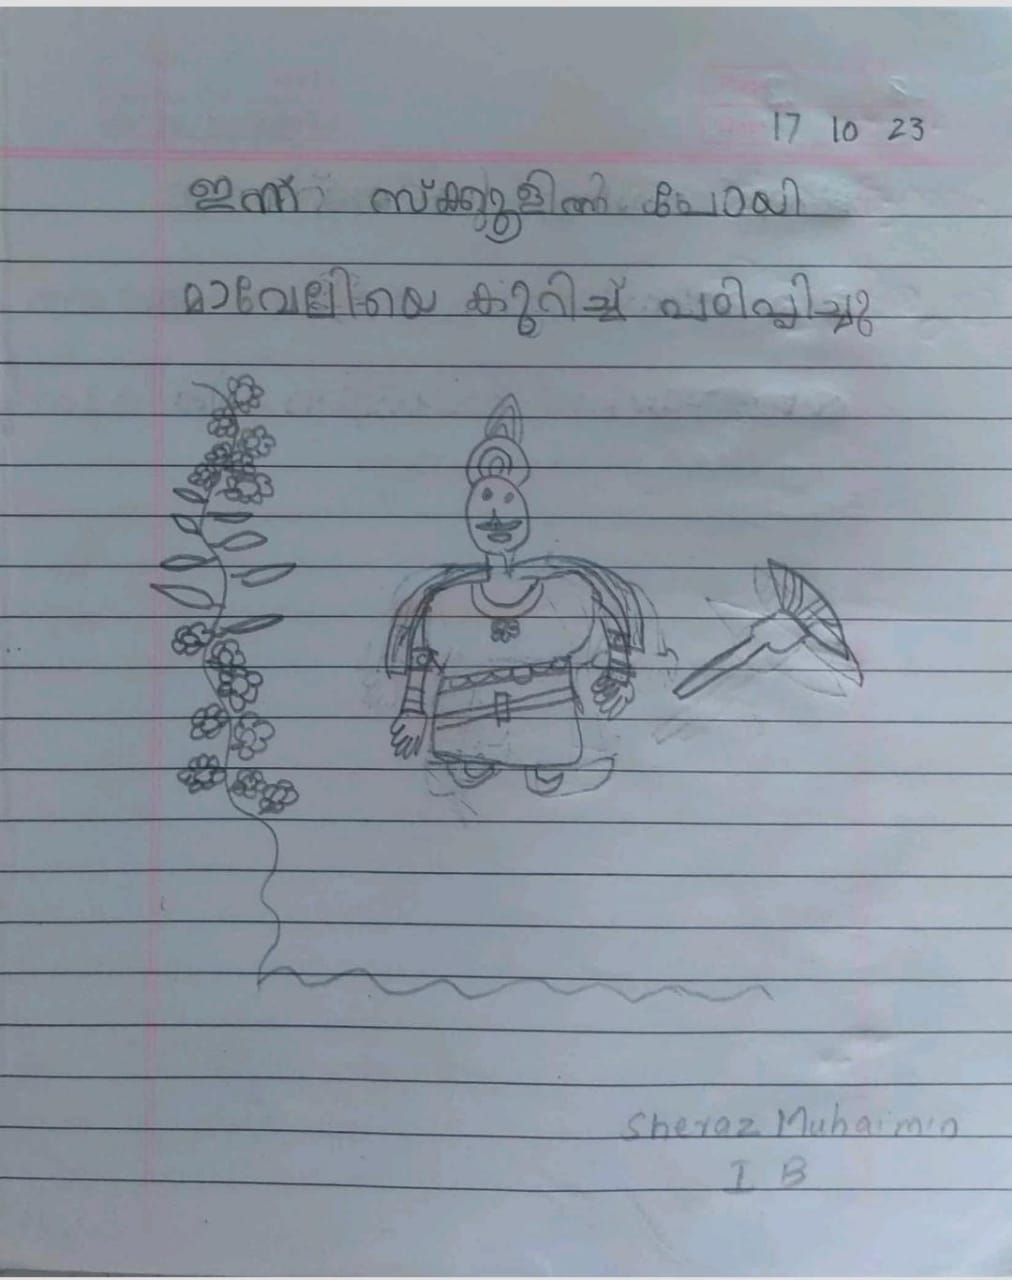 17 10 23
ഇന്ന് സ്ക്കൂളിൽ പോയി
മാവേലിയെ കുറിച്ച് പഠിപ്പിച്ചു
Sheraz Muhaimin
I B